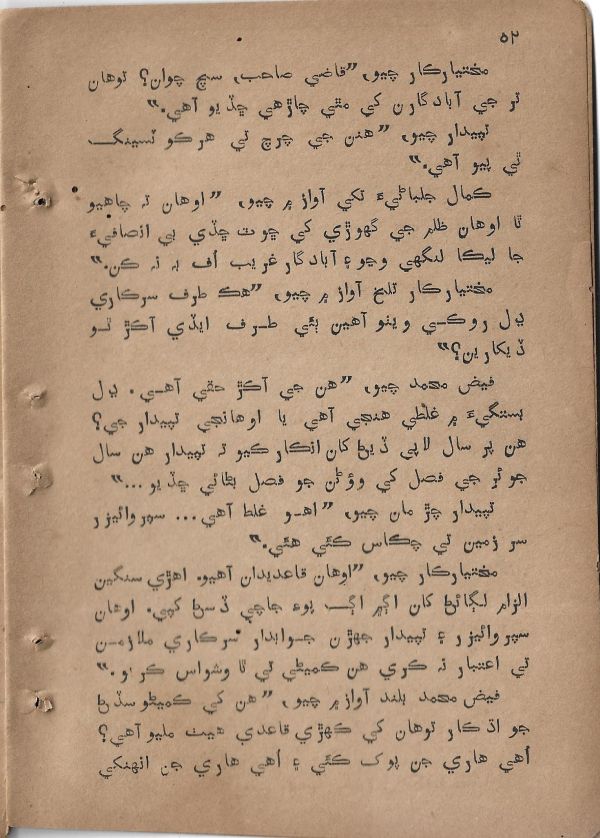 ٥٢
مختيارڪار چيو، ”قاضي صاحب، سچ چوان؟ توهان
ئر جي آبادگارن کي مٿي چاڙهي ڇڏيو آهي.“
تپيدار چيو، ”هنن جي چرچ تي هرڪو ٽسينگ
ٿي پيو آهي.“
ڪمال جلباڻيءَ تکي آواز ۾ چيو، ”اوهان ته چاهيو
ٿا اوهان ظلم جي گهوڙي کي ڇوٽ ڇڏي بي انصافيءَ
جا ليڪا لنگهي وڃو ۽ آبادگار غريب اُف به نه ڪن.“
مختيارڪار تلخ آواز ۾ چيو، ”هڪ طرف سرڪاري
ڍل روڪي ويٺو آهين ٻئي طرف ايڏي آڪڙ ٿو
ڏيکارين؟“
فيض محمد چيو، ”هن جي آڪڙ حقي آهي. ڍل
بستگيءَ ۾ غلطي هنجي آهي يا اوهانجي تپيدار جي؟
هن پر سال لاپي ڏيڻ کان انڪار ڪيو ته تپيدار هن سال
جوئر جي فصل کي وؤڻن جو فصل بڻائي ڇڏيو...“
تپيدار چڙ مان چيو، ”اهو غلط آهي... سپروائيزر
سر زمين تي چڪاس ڪئي هئي.“
مختيارڪار چيو، ”اوهان قاعديدان آهيو. اهڙي سنگين
الزام لڳائڻ کان اڳ ۾ اڳ پوءِ جاچي ڏسڻ کپي. اوهان
سپروائيزر ۽ تپيدار جهڙن جوابدار سرڪاري ملازمن
تي اعتبار نه ڪري هن ڪميڻي تي ٿا وشواس ڪريو.“
فيض محمد بلند آواز ۾ چيو، ”هن کي ڪميڻو سڏڻ
جو اڌڪار توهان کي ڪهڙي قاعدي هيٺ مليو آهي؟
اُهي هاري جن پوک ڪئي ۽ اُهي هاري جن انهنکي